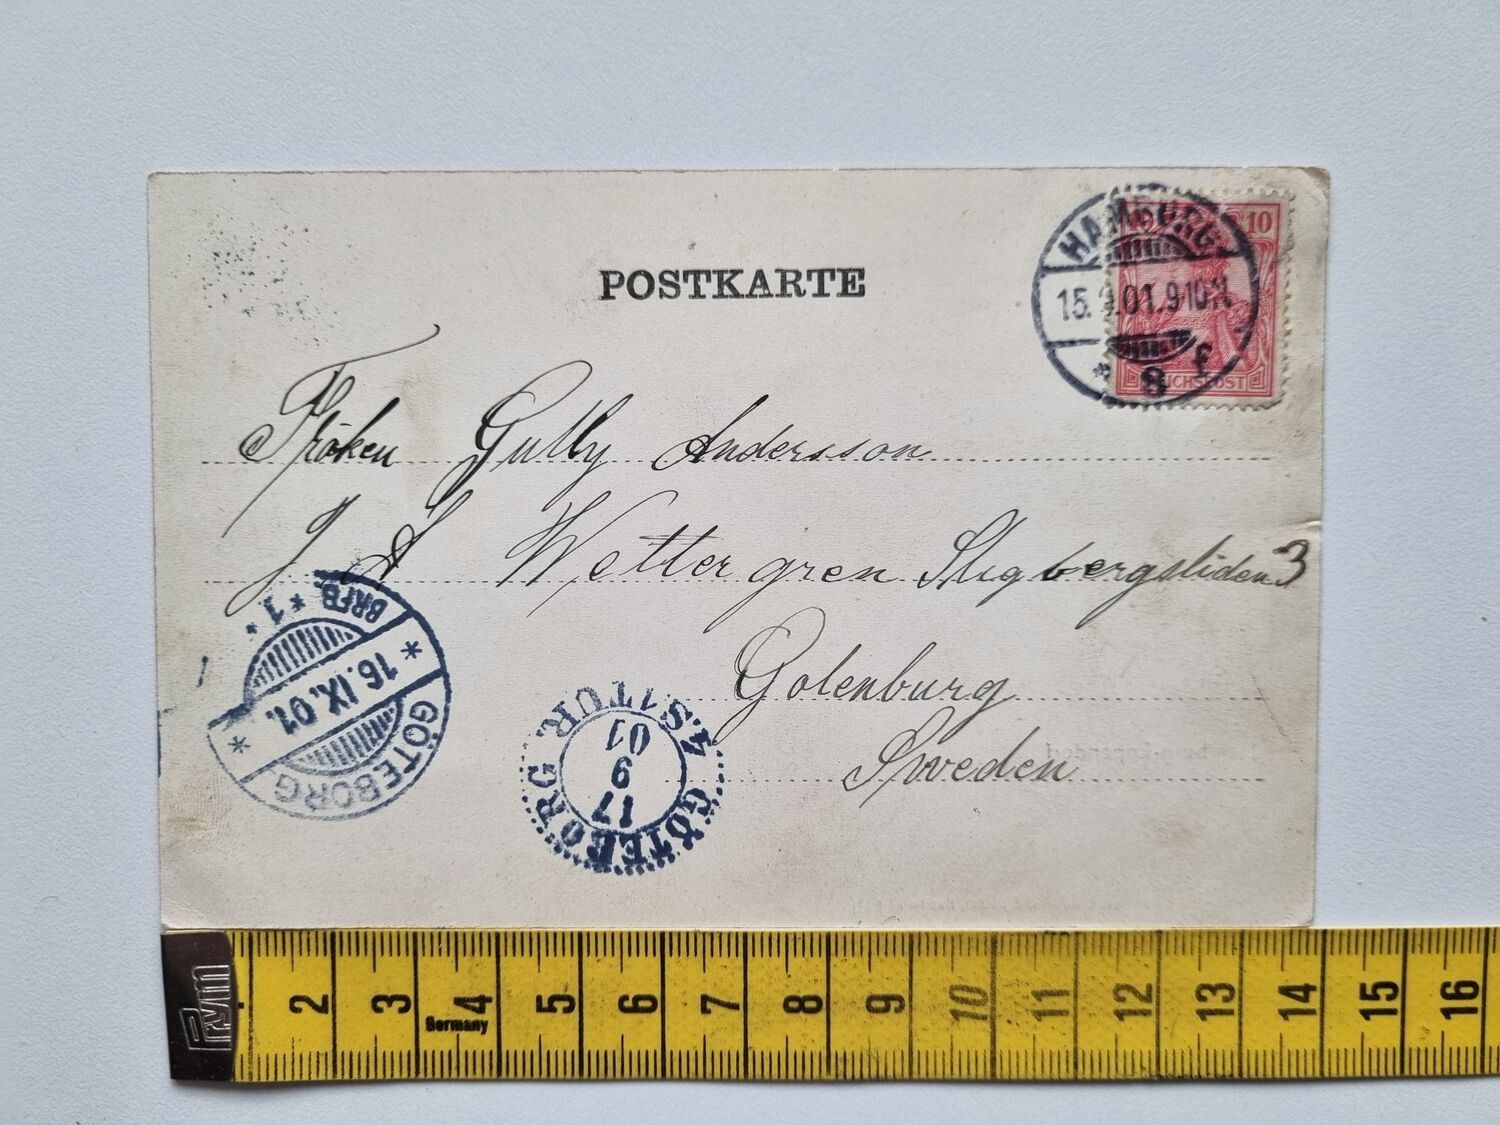 POSTKARTE
HAMBURG
15. 9. 01. 9-10 N
* 8 f
10 10
REICHSPOST
Fröken Gully Andersson
J A Wettergren Stigbergsliden 3
Gotenburg
Sweden
* 1 * BRFB.
* 16. IX. 01. *
GÖTEBORG
GÖTEBORG
17
9
01
4S. 1TUR.
Prym
2 3 4 5 6 7 8 9 10 11 12 13 14 15 16
Germany